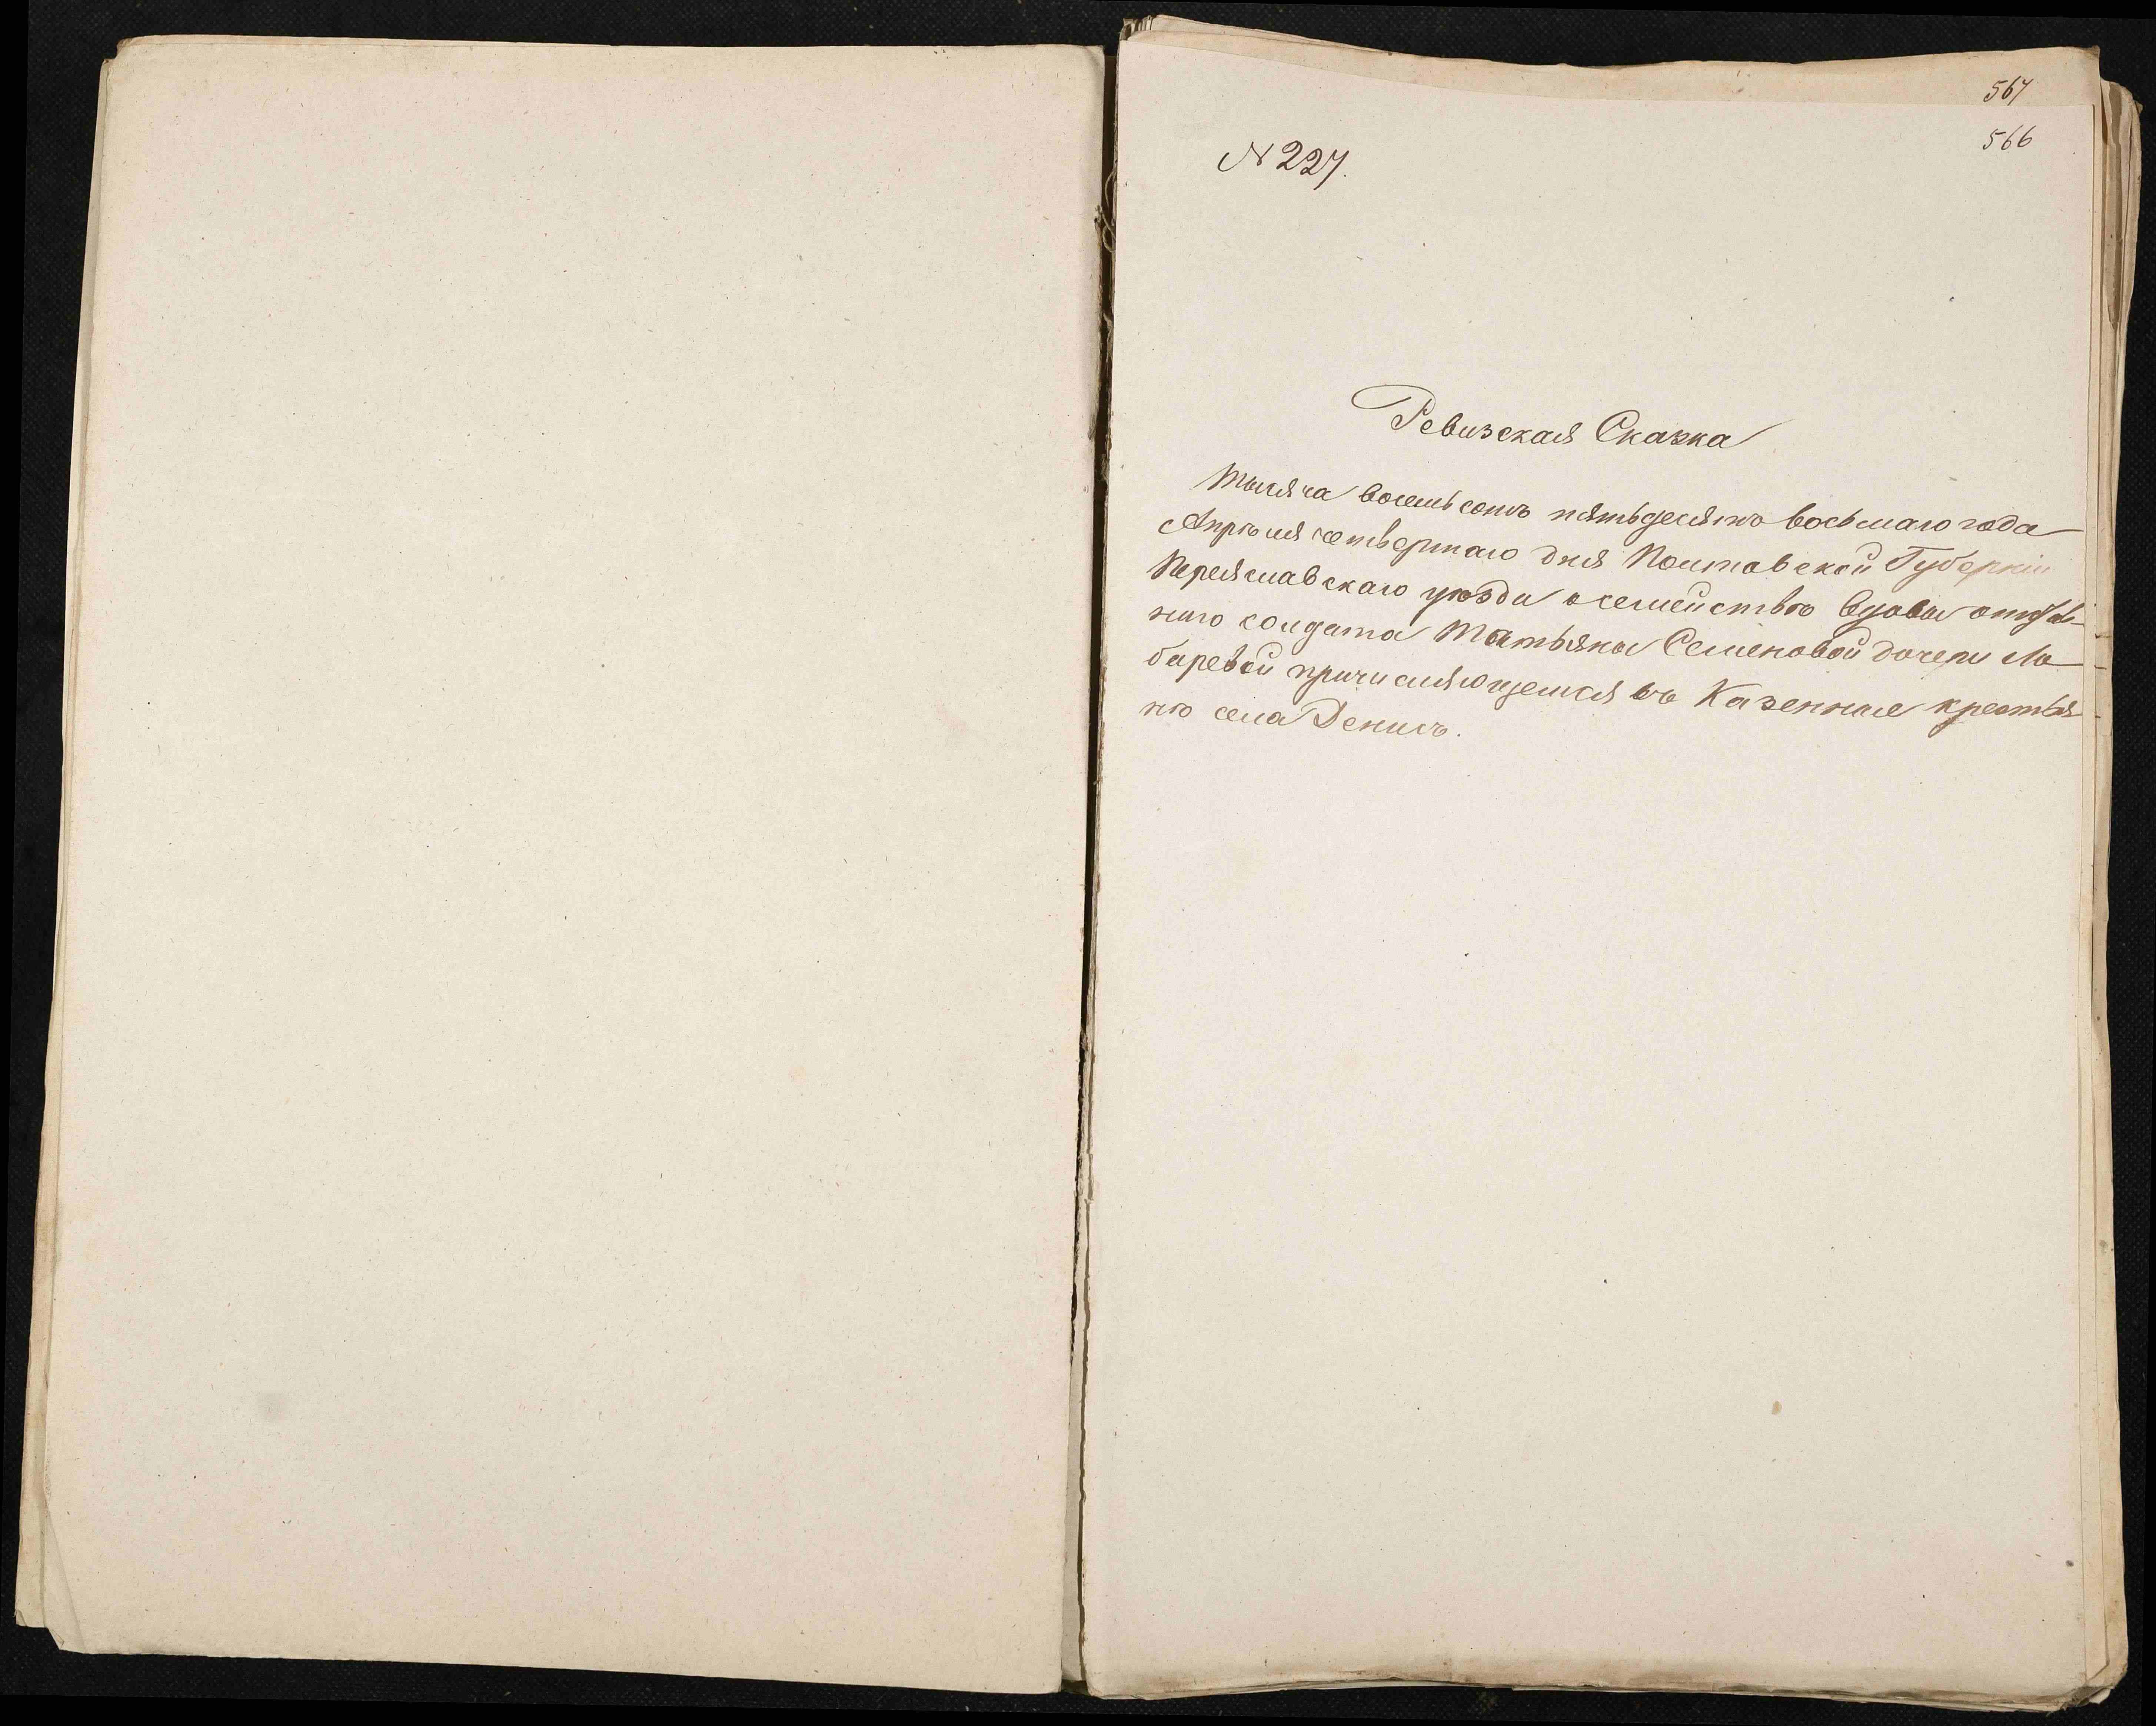 567
566
N 227.
Ревизская Сказка
Тысяча восемьсотъ пятьдесятъ восьмаго года
Апрѣля четвертаго дня Полтавской Губерніи
Переяславскаго уѣзда о семействѣ вдовы отстав-
ного солдата Татьяны Семеновой дочери Ло
баревой причисляющемся въ Казенные крестья
не села Денисъ.